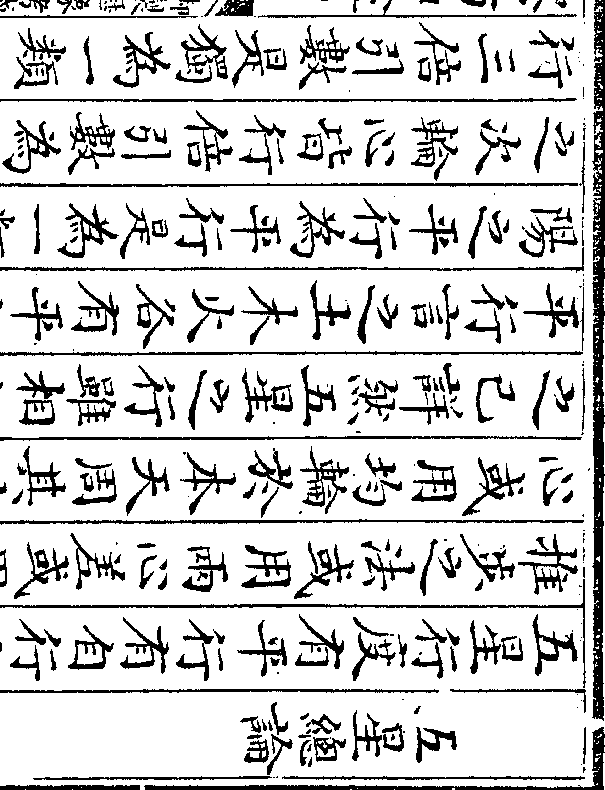 五星總論
五星行度有平行有自行
推步之法或用兩心差或
心或用均輪於本天周其
之已詳然五星之行雖相
平行言之土木火各有平
陽之平行為平行是為一
之次輪心皆行倍引數為
行三倍引數是獨為一類